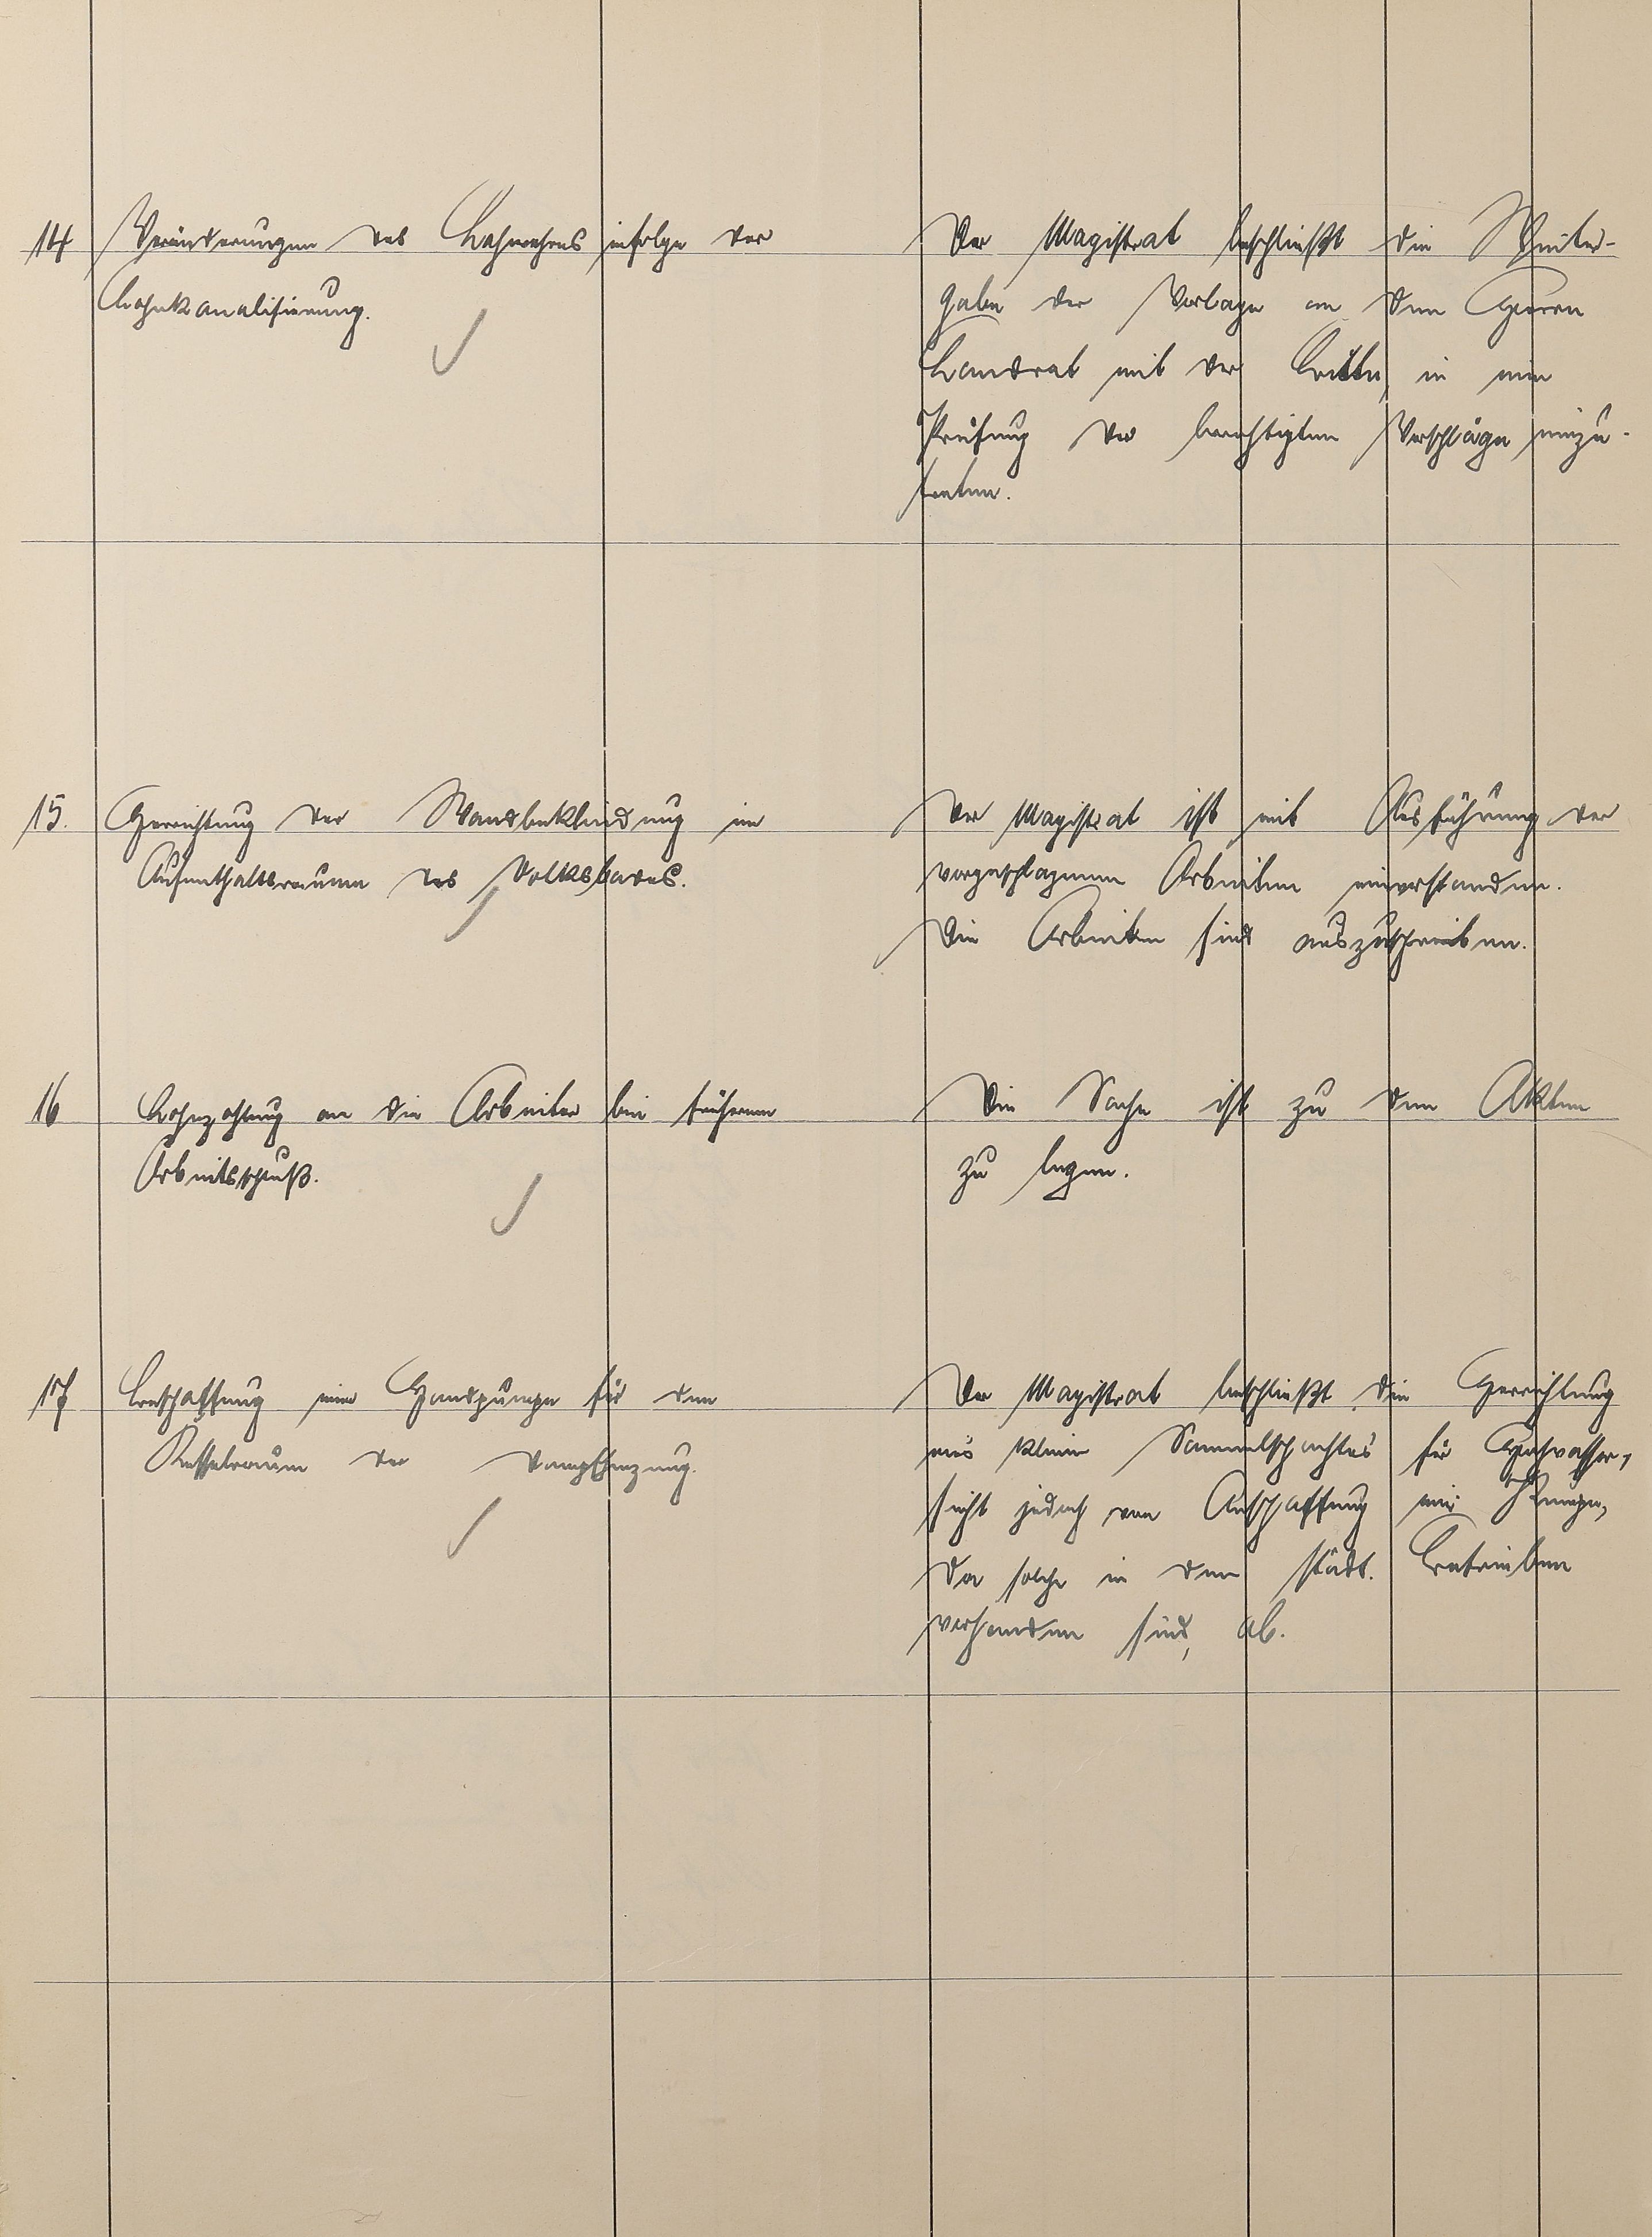 14 Veränderungen des Lahnwehres infolge der
Lahnkanalisierung.
Der Magistrat beschließt die Weiter-
gabe der Vorlage an den Herrn
Landrat mit der Bitte, in eine
Prüfung der berechtigten Vorschläge einzu-
treten.
15. Herrichtung der Wandbekleidung im
Aufenthaltsraume des Volksbades.
Der Magistrat ist mit Ausführung der
vorgeschlagenen Arbeiten einverstanden.
Die Arbeiten sind auszuschreiben.
16 Lohnzahlung an die Arbeiter bei früherem
Arbeitsschluß.
Die Sache ist zu den Akten
zu legen.
17 Beschaffung einer Handpumpe für den
Kesselraum der Dampfheizung.
Der Magistrat beschließt die Herrichtung
eines kleinen Sammelschachtes für
sieht jedoch von Anschaffung einer Pumpe,
da solche in den städt. Betrieben
vorhanden sind, ab.